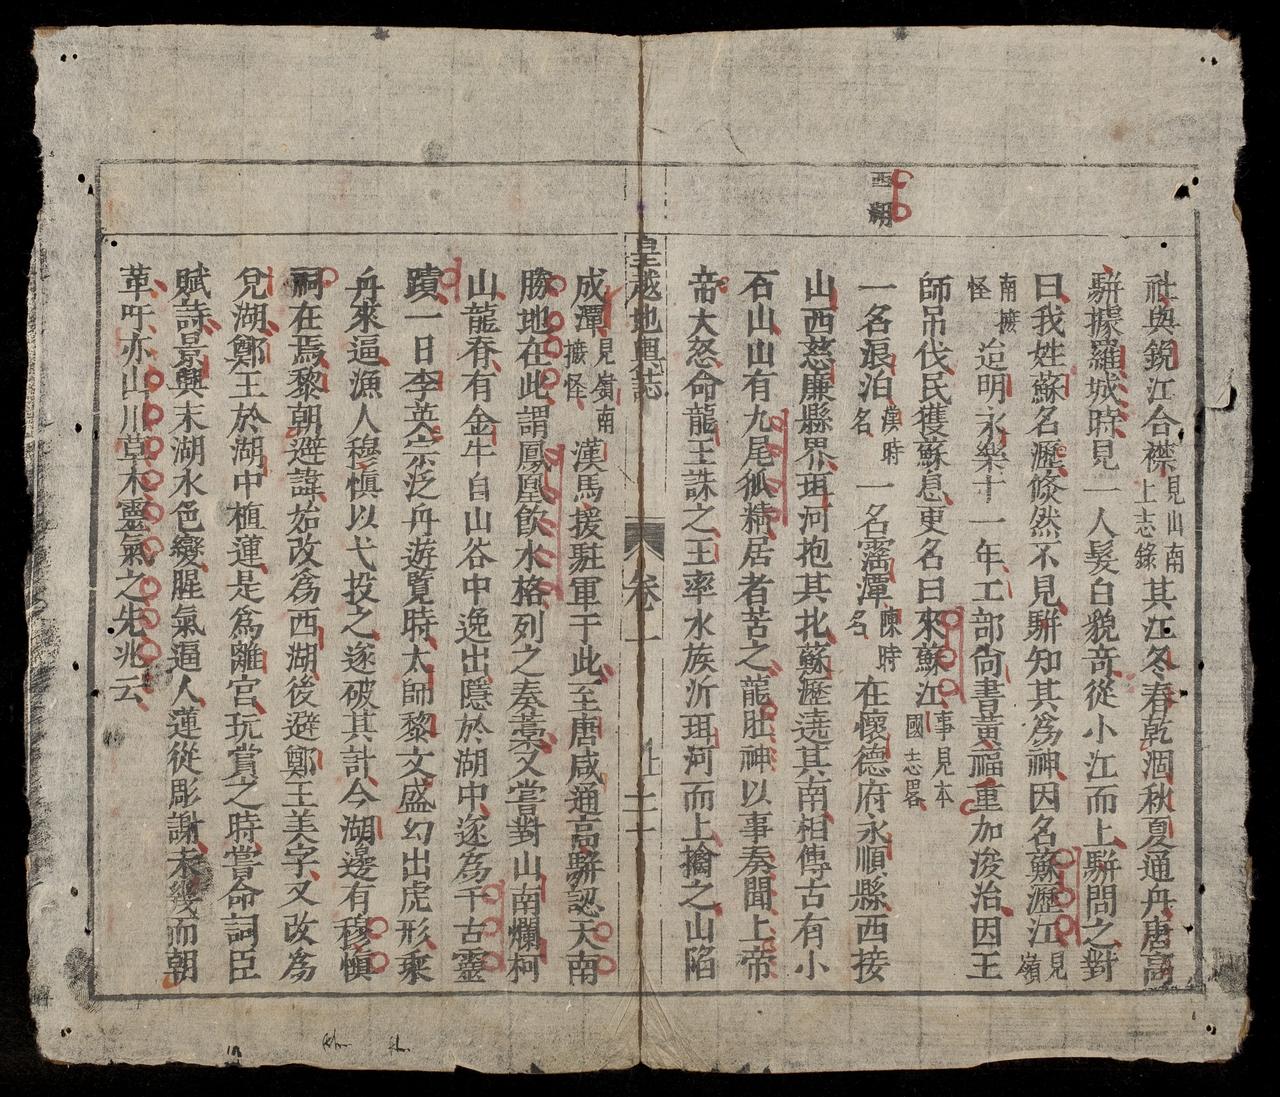 西湖
社與銳江合襟見山南上志錄其江冬春乾涸秋夏通舟唐高
駢據羅城時見一人髮白貌竒從小江而上駢問之對
曰我姓蘇名瀝倐然不見駢知其爲神因名蘇瀝江見嶺
南摭怪迨明永樂十一年工部尙書黄福重加浚治因王
師吊伐民獲蘇息更名曰來蘇江事見本國志畧
一名浪泊漢時名一名霪潭陳時名在懷德府永順縣西接
山西慈廉縣界珥河抱其北蘇瀝遶其南相傳古有小
石山山有九尾狐精居者苦之龍肚神以事奏聞上帝
帝大怒命龍王誅之王率水族沂珥河而上擒之山陷
皇越地輿誌 卷一 十一
成潭見嶺南摭怪漢馬援駐軍于此至唐咸通高駢認天南
勝地在此謂鳳凰飲水格列之奏藁又嘗對山南爛柯
山龍脊有金牛自山谷中逸出隱於湖中遂爲千古靈
蹟一日李英宗泛舟遊覽時太師黎文盛幻出虎形乘
舟來逼漁人穆愼以弋投之遂破其計今湖邊有穆愼
祠在焉黎朝避諱始改爲西湖後避鄭王美字又改爲
兌湖鄭王於湖中植蓮是爲離宫玩賞之時嘗命詞臣
賦詩景興末湖水色變腥氣逼人蓮從彫謝未幾而朝
革吁亦山川草木靈氣之先兆云